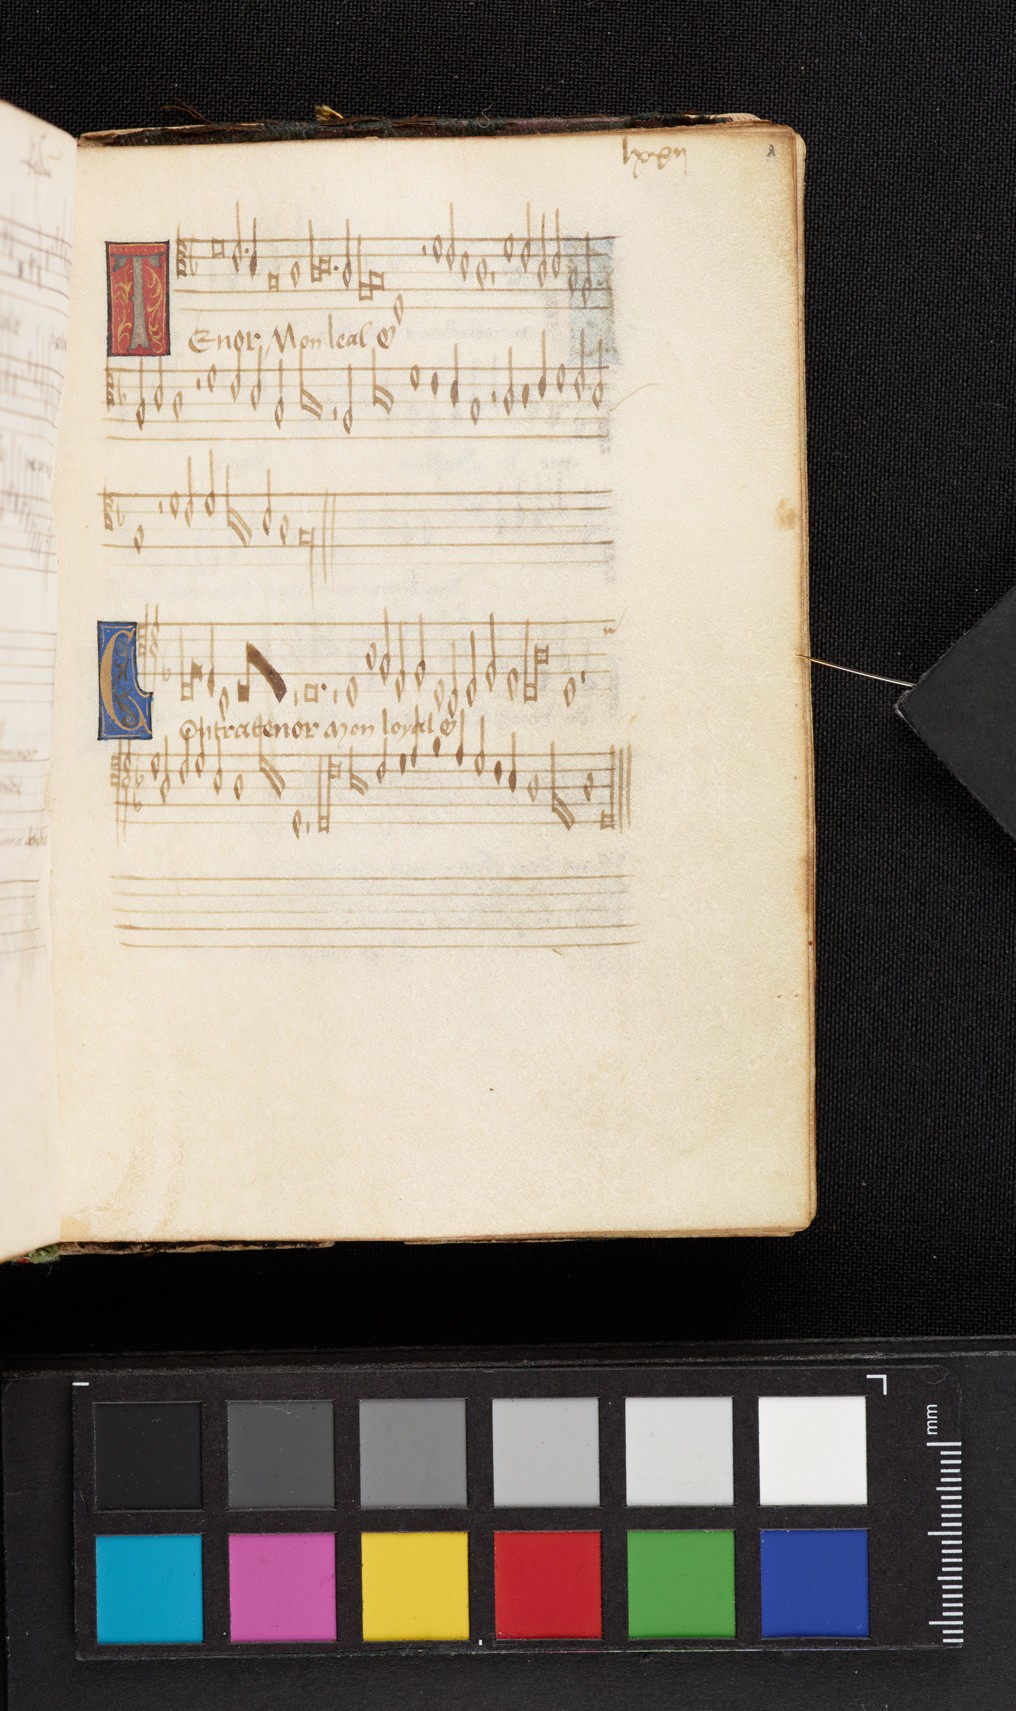 lxxii
TEnor Mon leal &
COntratenor mon loyal &
mm